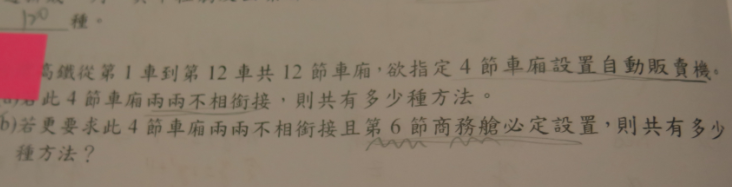 120 種。
高鐵從第 1 車到第 12 車共 12 節車廂，欲指定 4 節車廂設置自動販賣機。
(a)若此 4 節車廂兩兩不相銜接，則共有多少種方法。
(b)若更要求此 4 節車廂兩兩不相銜接且第 6 節商務艙必定設置，則共有多少
種方法？